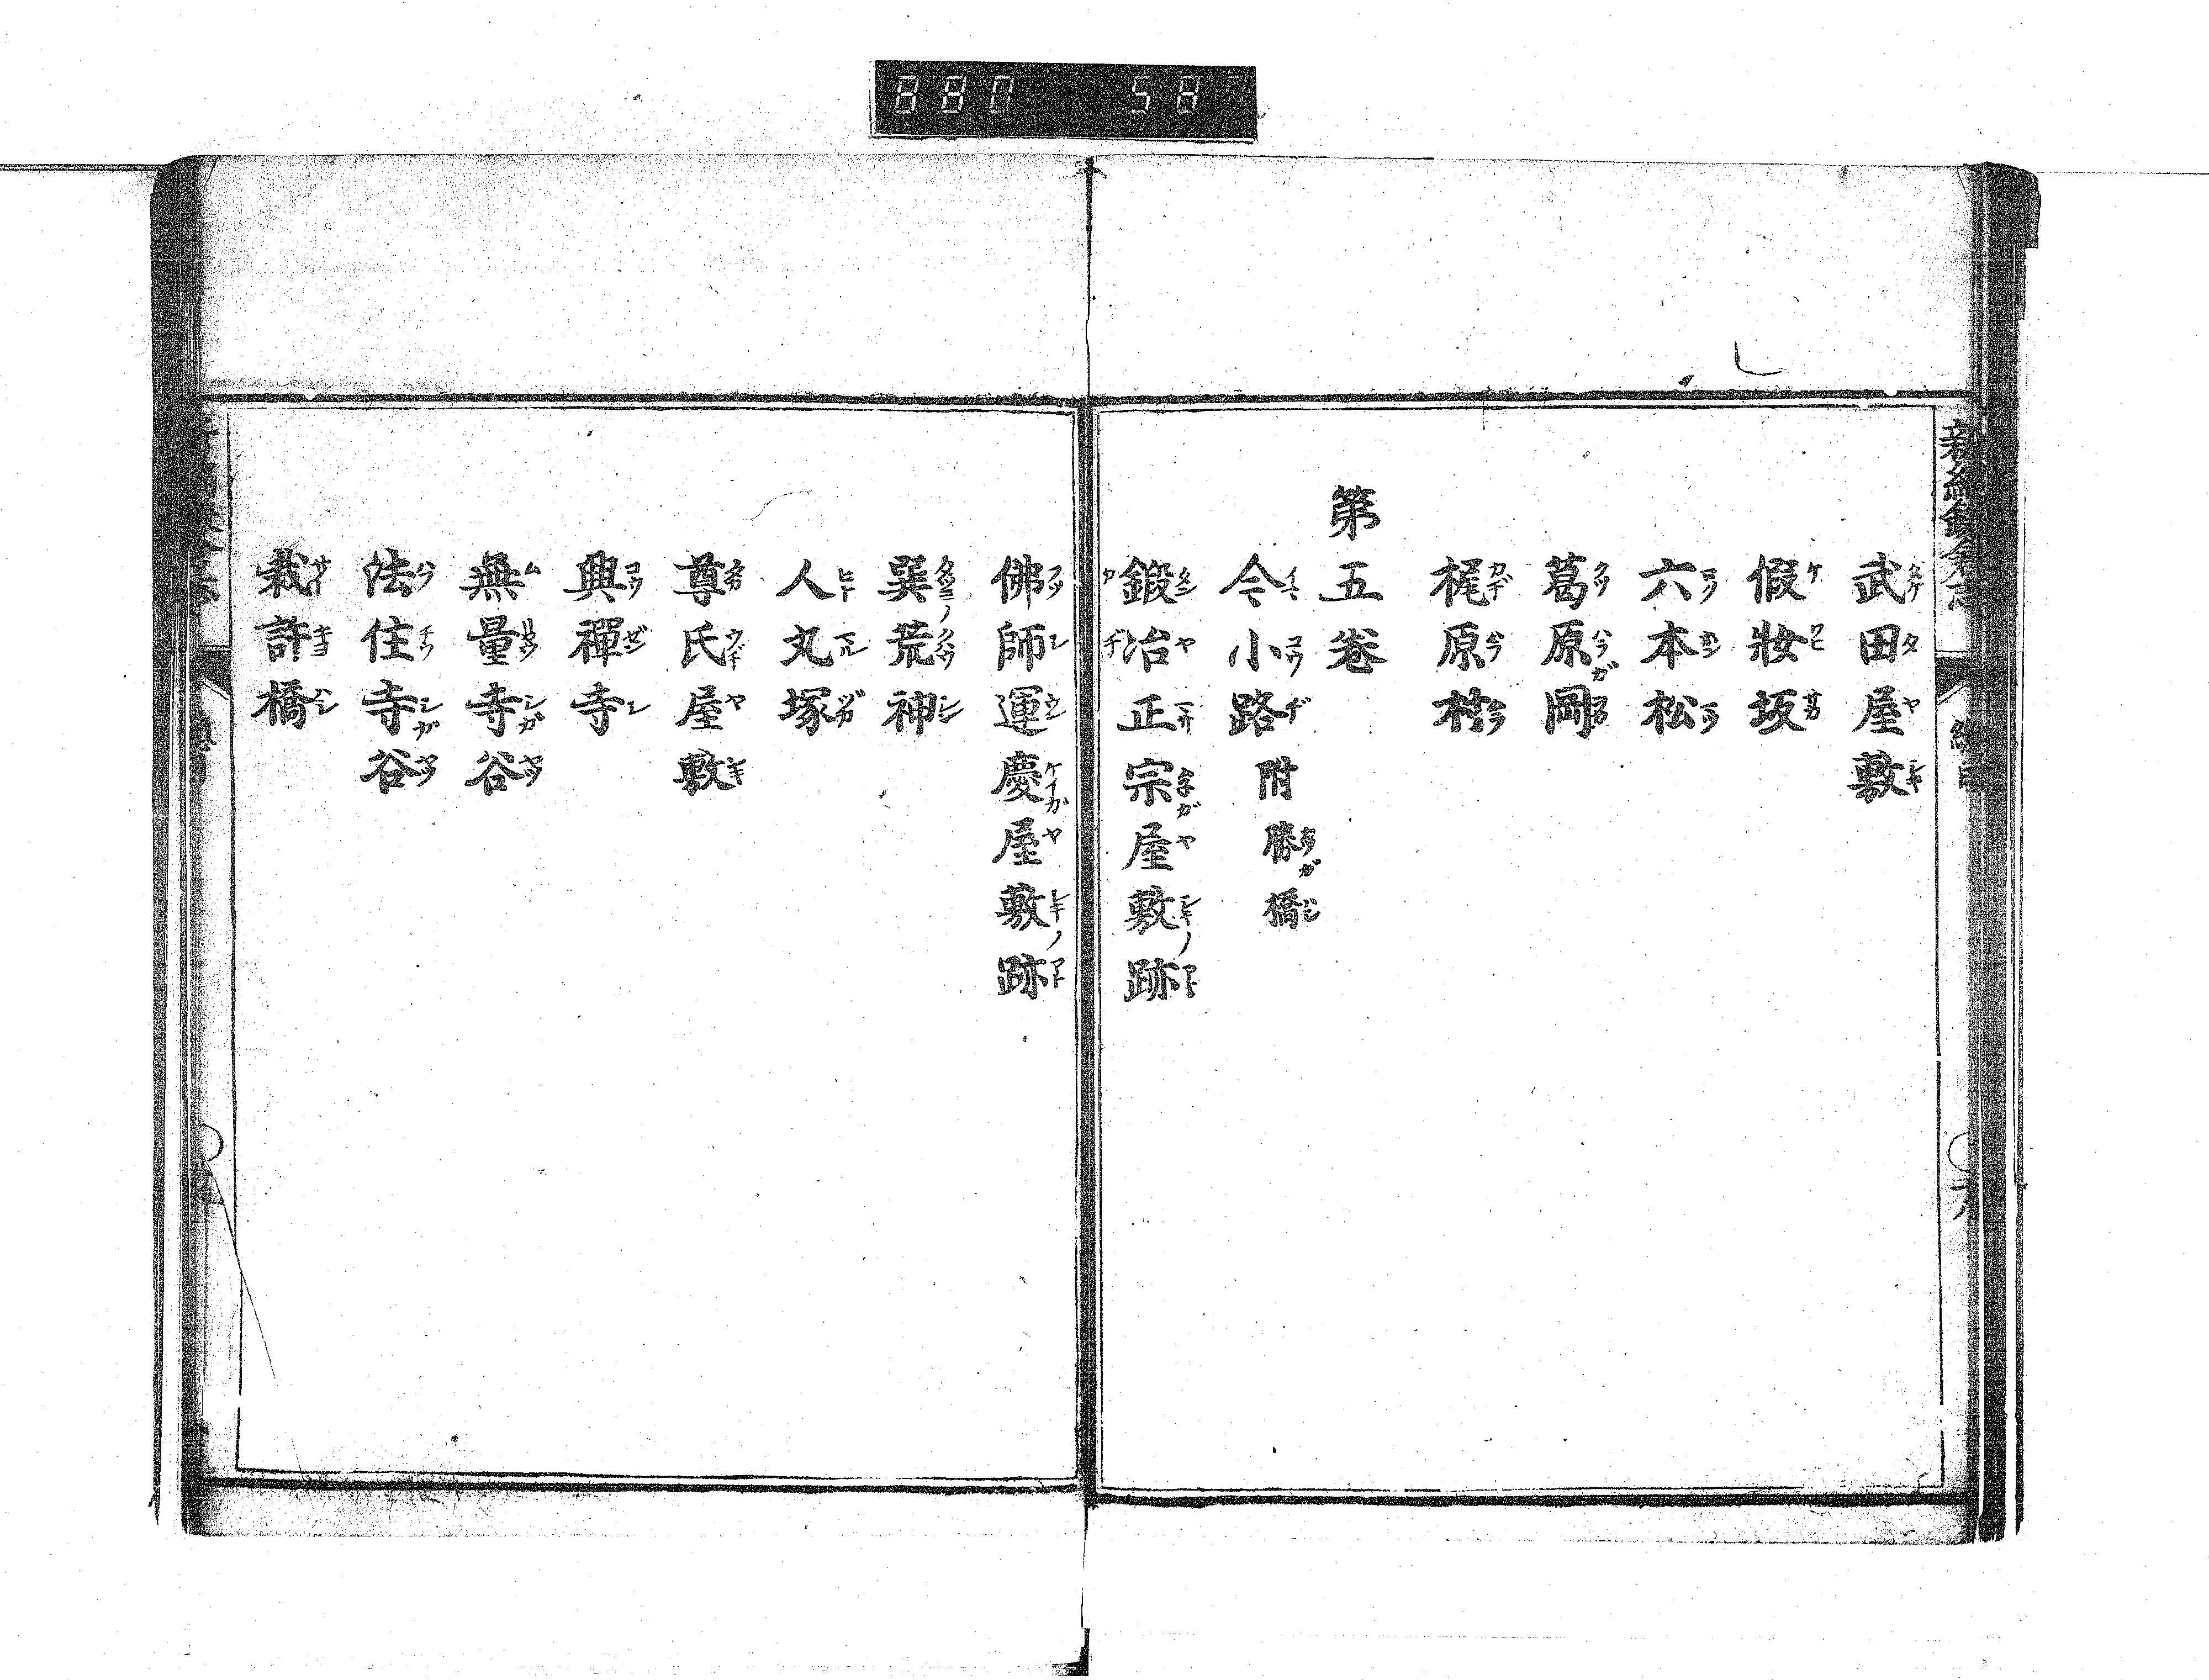 880 58
新編鎌倉志
總目
六
武田屋敷
假妝坂
六本松
葛原岡
梶原村
第五卷
今小路 附 勝橋
鍛冶正宗屋敷跡
佛師運慶屋敷跡
巽荒神
人丸塚
尊氏屋敷
興禪寺
無量寺谷
法住寺谷
裁許橋